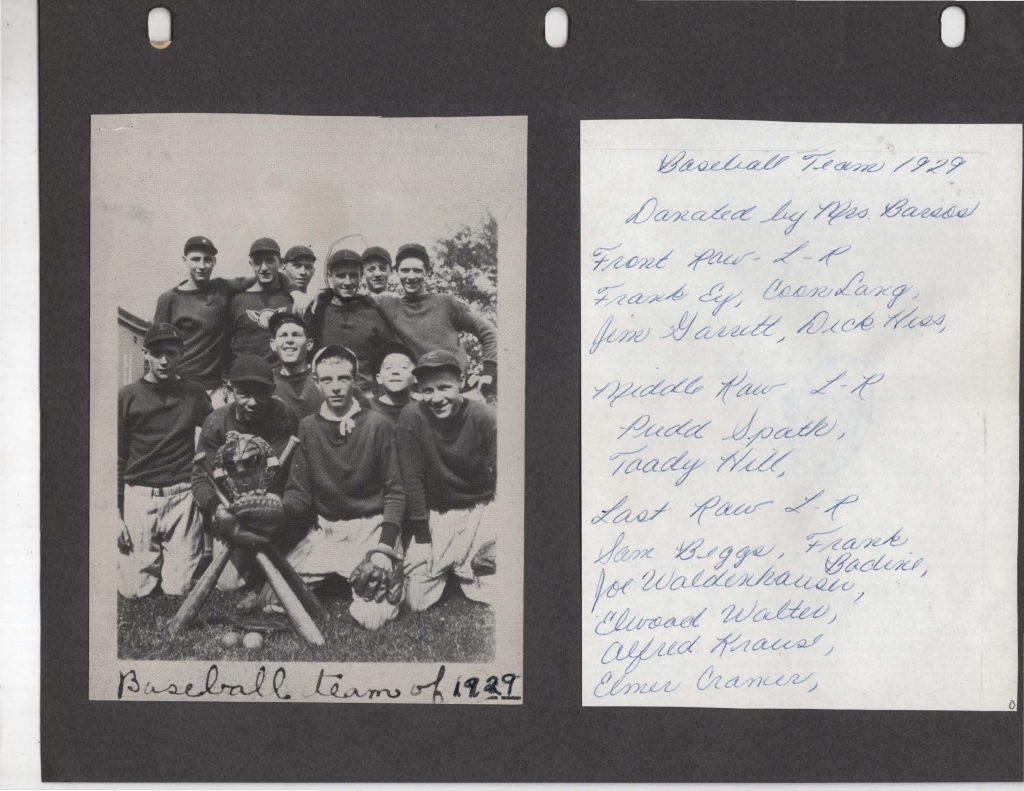 Baseball team of 1929
Baseball Team 1929
Donated by Mrs. Barsos
Front Row - L-R
Frank Ey, Coon Lang,
Jim Garrett, Dick Hiss,
Middle Row L-R
Pudd Spath,
Toady Hill,
Last Row L-R
Sam Beggs, Frank
Bodine,
Joe Waldenhauser,
Elwood Walter,
Alfred Krause,
Elmer Cramer,